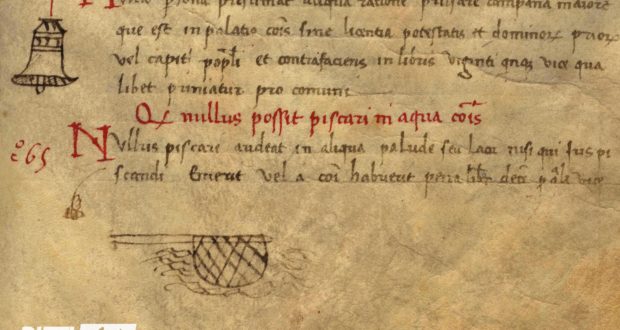 persona presumat aliqua ratione pulsare campanā maiorē
que est in palatio cois sine licentia potestatis et dominorꝝ priorꝝ
vel capitj popli et contrafaciens in libris viginti qnqꝫ vice qua
libet puniatur pro comuni
Qđ nullus possit piscari in aqua cois
Nullus piscari audeat in aliqua palude seu lacu nisi qui ius pi
scandi emerit vel a coi habuerit pena libr decē vice
265